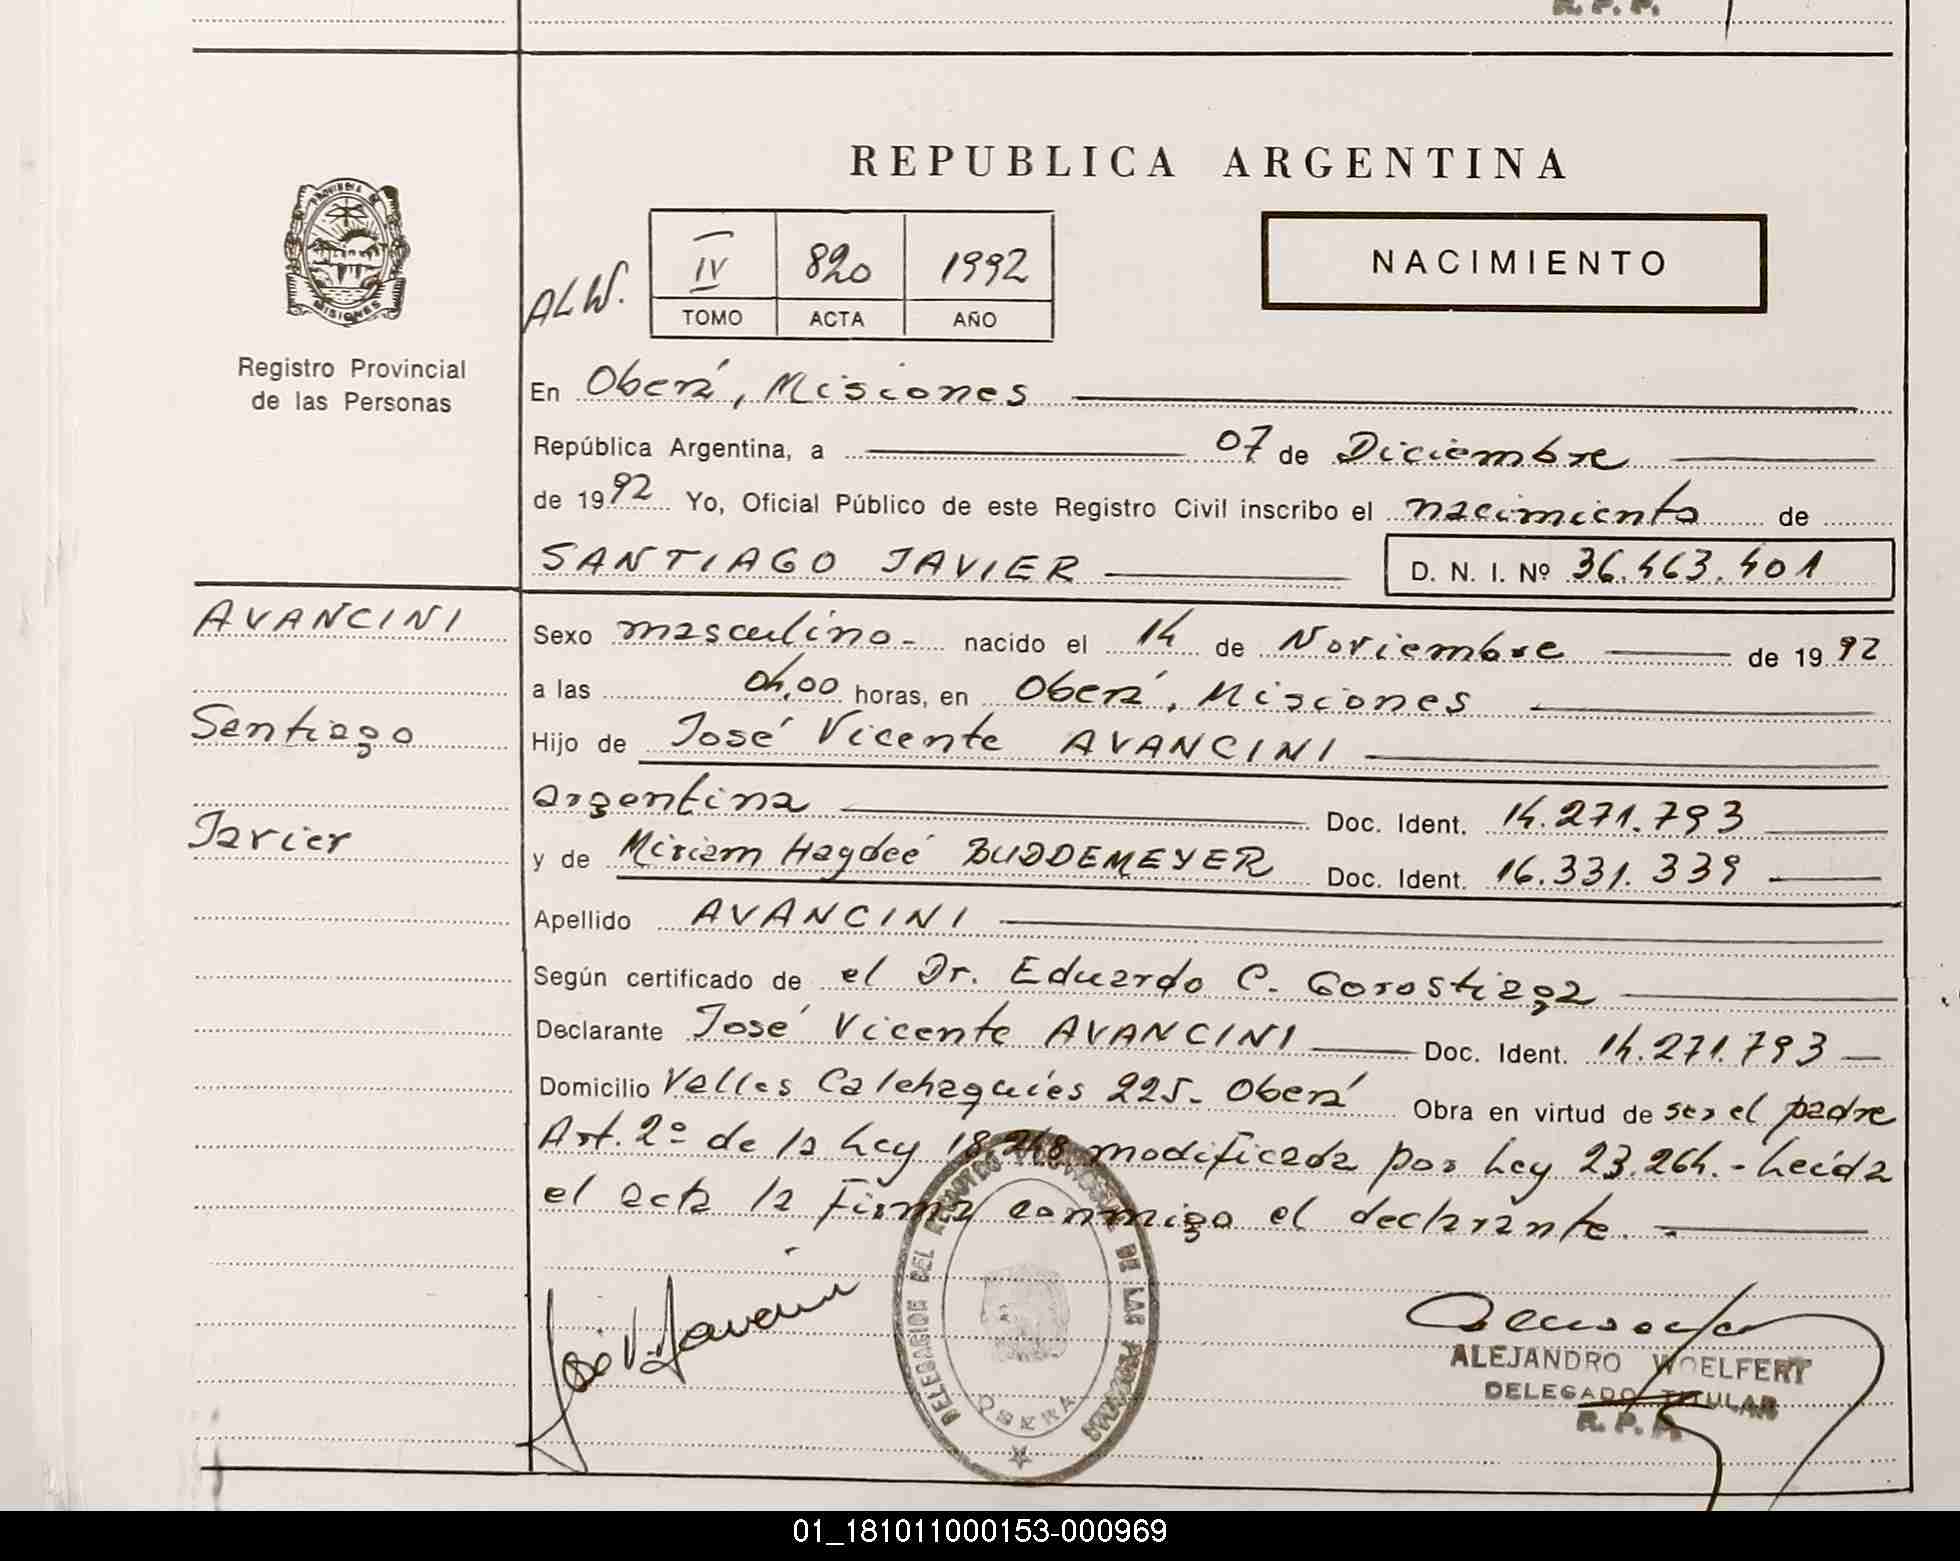 R. P. P.
REPUBLICA ARGENTINA
PROVINCIA DE
MISIONES
Registro Provincial
de las Personas
ALW.
IV 820 1992
TOMO ACTA AÑO
NACIMIENTO
En Oberá, Misiones
República Argentina, a 07 de Diciembre
de 1992 Yo, Oficial Público de este Registro Civil inscribo el nacimiento de
SANTIAGO JAVIER D. N. I. Nº 36.463.401
AVANCINI
Santiago
Javier
Sexo masculino.- nacido el 14 de Noviembre de 1992
a las 04,00 horas, en Oberá, Misiones
Hijo de José Vicente AVANCINI
argentina Doc. Ident. 14.271.793
y de Miriam Haydeé BUDDEMEYER Doc. Ident. 16.331.339
Apellido AVANCINI
Según certificado de el Dr. Eduardo C. Gorostiaga
Declarante José Vicente AVANCINI Doc. Ident. 14.271.793
Domicilio Valles Calchaquíes 225.- Oberá Obra en virtud de ser el padre
Art. 2º de la Ley 18.248 modificada por Ley 23.264.- Leída
el acta la firma conmigo el declarante.-
José V. Avancini
DELEGACION DEL REGISTRO PROVINCIAL DE LAS PERSONAS
OBERA
ALEJANDRO WOELFERT
DELEGADO TITULAR
R. P. P.
01_181011000153-000969